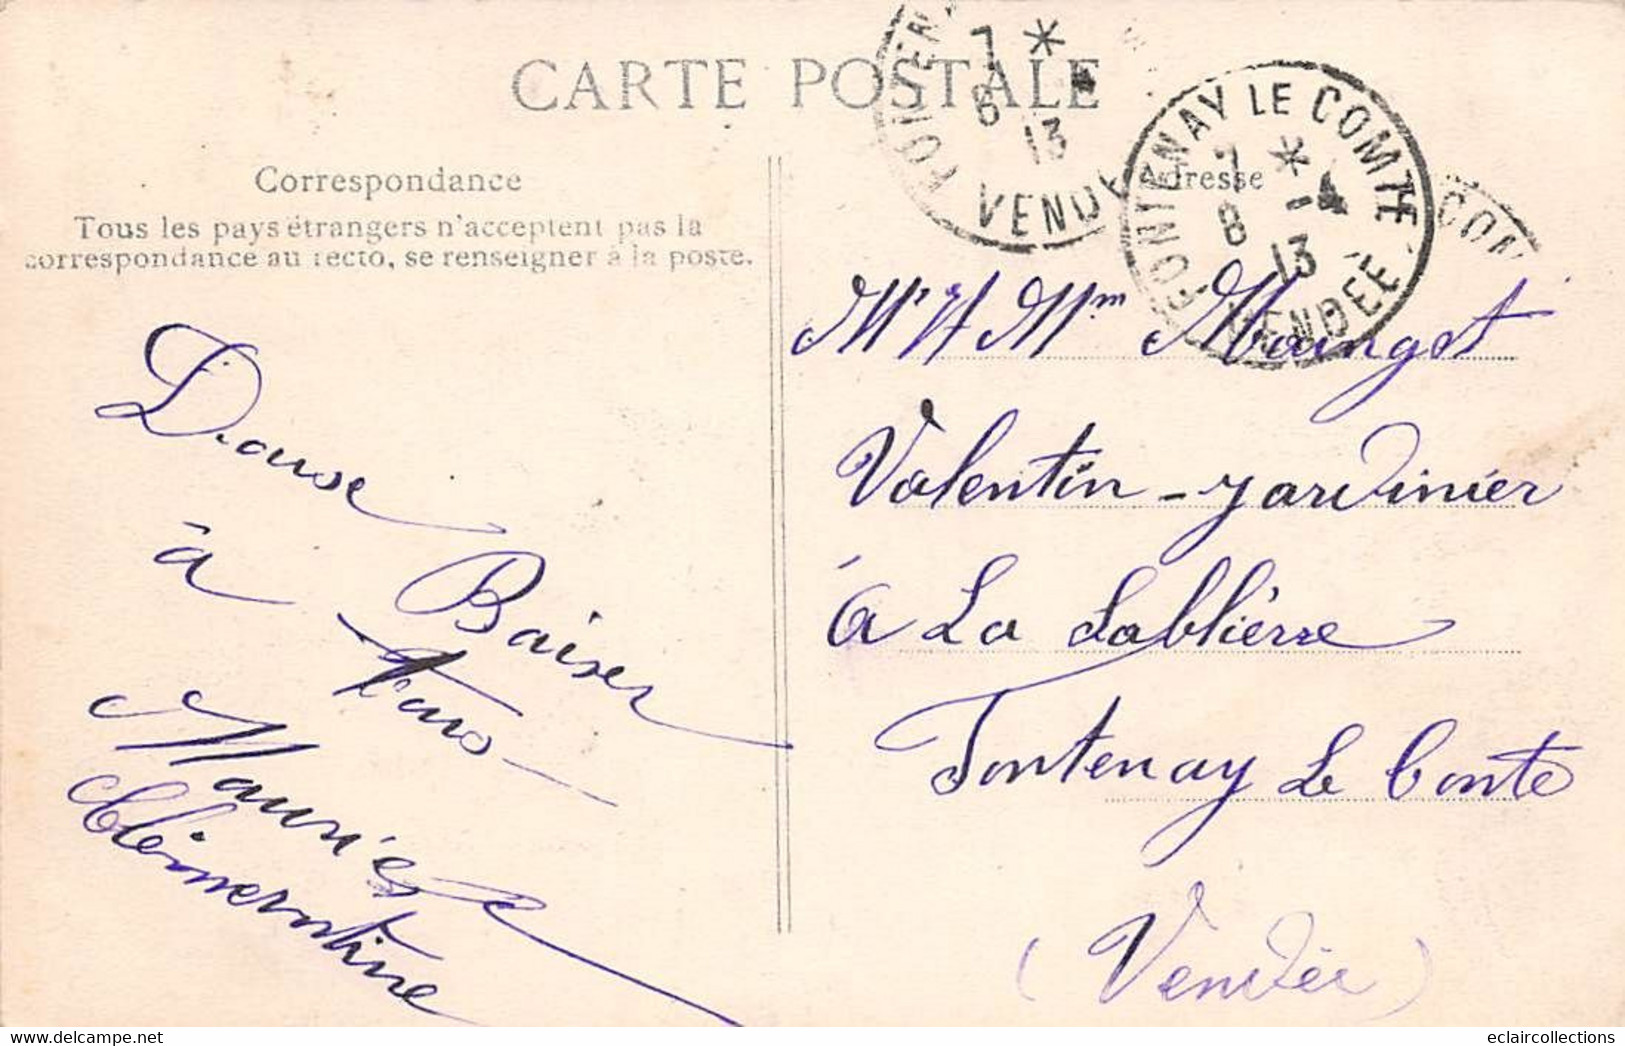 CARTE POSTALE
Correspondance
Tous les pays étrangers n'acceptent pas la
correspondance au recto, se renseigner à la poste.
Douse
Baiser
à tous
Maurice
Clémentine
FONTEN
7 *
8 13
VENDE
FONTENAY LE COMTE
7 * 1
8 13
VENDÉE
COM
Adresse
Mr & Mme Maingot
Valentin - jardinier
à La Sablière
Fontenay Le Comte
(Vendée)
eclaircollections